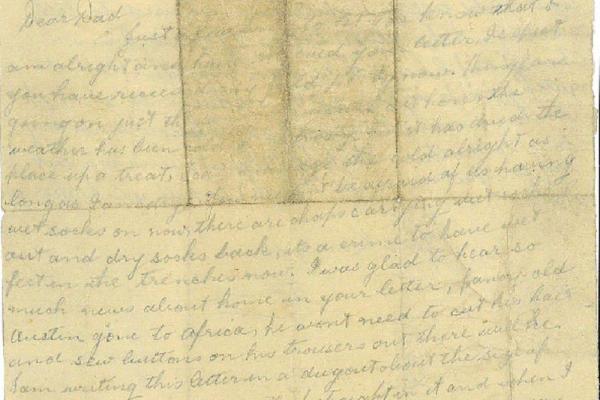 Dear Dad
Just a to let you know that I
am alright and have received your letter, I expect
you have received my by now. things are
going on just the here. the
weather has been and it has dried the
place up a treat, the cold alright as
long as I am dry. You needn't be afraid of us having
wet socks on now, there are chaps carrying wet socks
out and dry socks back, its a crime to have wet
feet in the trenches now. I was glad to hear so
much news about home in your letter, fancy old
Austin gone to Africa, he wont need to cut his hair
and sew buttons on his trousers out there will he.
I am writing this letter in a dugout about the size of
in it and when I